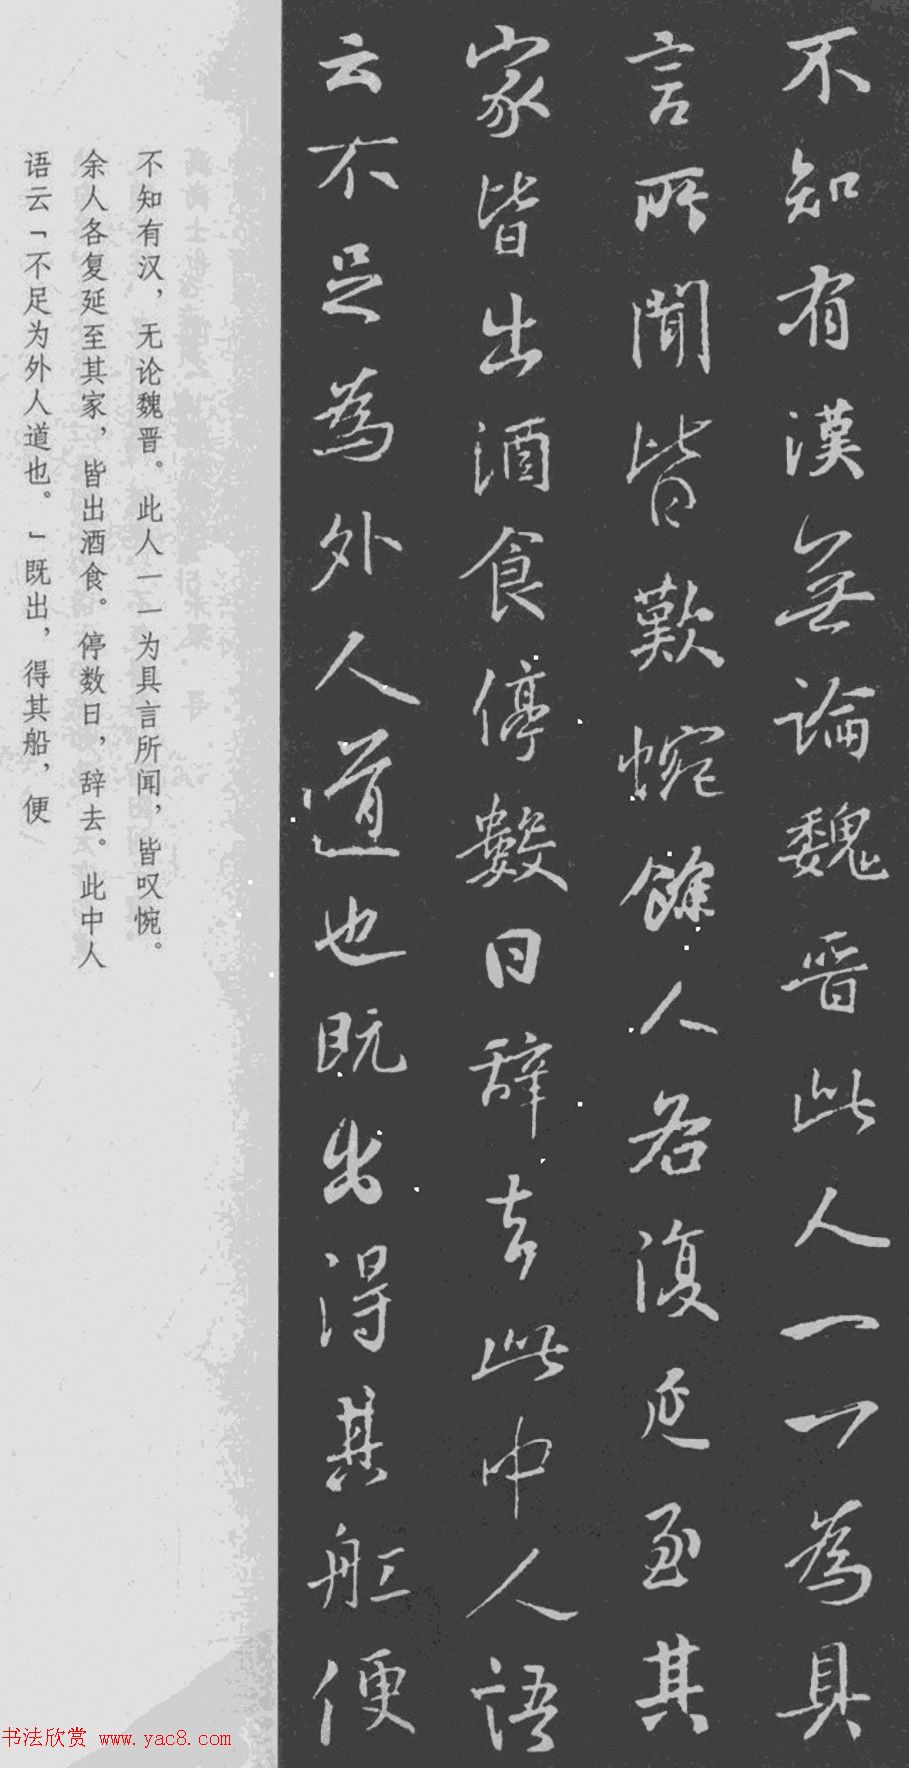 不知有漢無論魏晋此人一一為具
言所聞皆歎惋餘人各復延至其
家皆出酒食停數日辞去此中人語
云不足為外人道也既出得其舡便
不知有汉，无论魏晋。此人一一为具言所闻，皆叹惋。
余人各复延至其家，皆出酒食。停数日，辞去。此中人
语云「不足为外人道也。」既出，得其船，便
书法欣赏 www.yac8.com